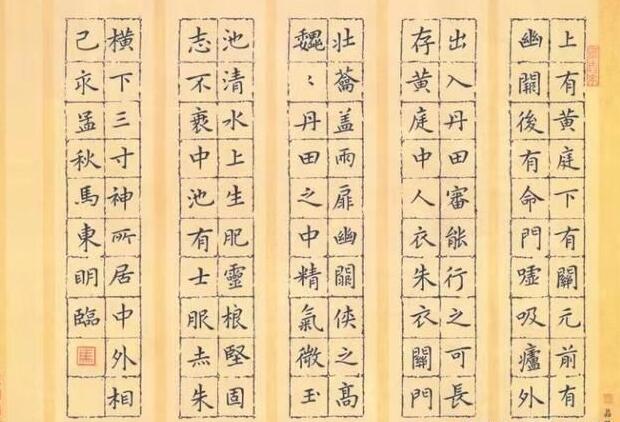 上有黄庭下有關元前有
幽闕後有命門嘘吸廬外
出入丹田審能行之可長
存黄庭中人衣朱衣關門
壮蘥盖兩扉幽闕侠之高
巍〻丹田之中精氣微玉
池清水上生肥靈根堅固
志不衰中池有士服赤朱
横下三寸神所居中外相
己亥孟秋馬東明臨
馬